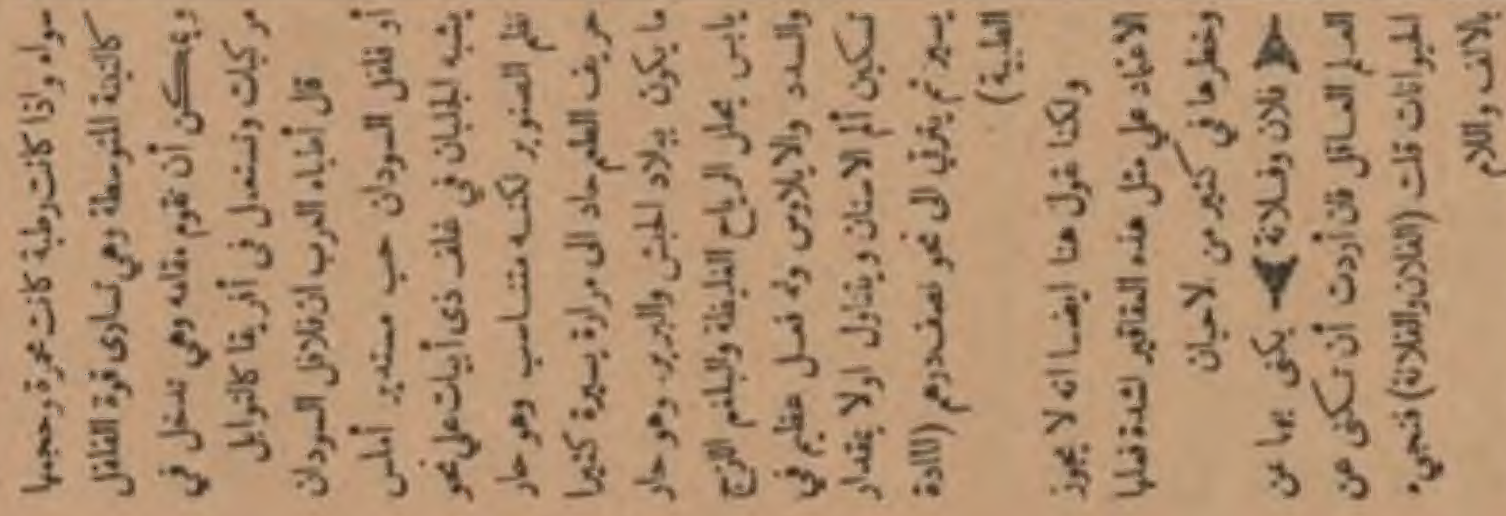 سواء واذا كانت رطبة كانت محمرة وحجمها
كالبندقة المتوسطة وهي تساوى قوة الفلفل
ويمكن أن تقوم مقامه وهي تدخل في
مركبات وتستعمل فى أفريقا كالتوابل
قال أطباء العرب ان فلافل السودان
أو فلفل السودان حب مستدير أملس
يشبه الجلبان في غلف ذى أبيات على نحو
نظم الصنوبر لكنه متناسب وهو حار
حريف الطعم حاد الى مرارة يسيرة كثيرا
ما يكون ببلاد الحبش والبربر. وهو حار
يابس يحلل الرياح الغليظة والبلغم اللزج
والسدد والايلاوس وله فعل عظيم في
تسكين ألم الاسنان ويتناول اولا بمقدار
يسير ثم يترقي الى نحو نصف درهم (المادة
الطبية)
ولكنا نقول هنا ايضا انه لا يجوز
الاعتماد علي مثل هذه العقاقير لشدة فعلها
وخطرها في كثير من لاحيان
فلان وفلانة يكنى بهما عن
العلم العاقل فان أردت أن تكنى عن
الحيوانات قلت (الفلان والفلانة) فتجيء
بالالف واللام